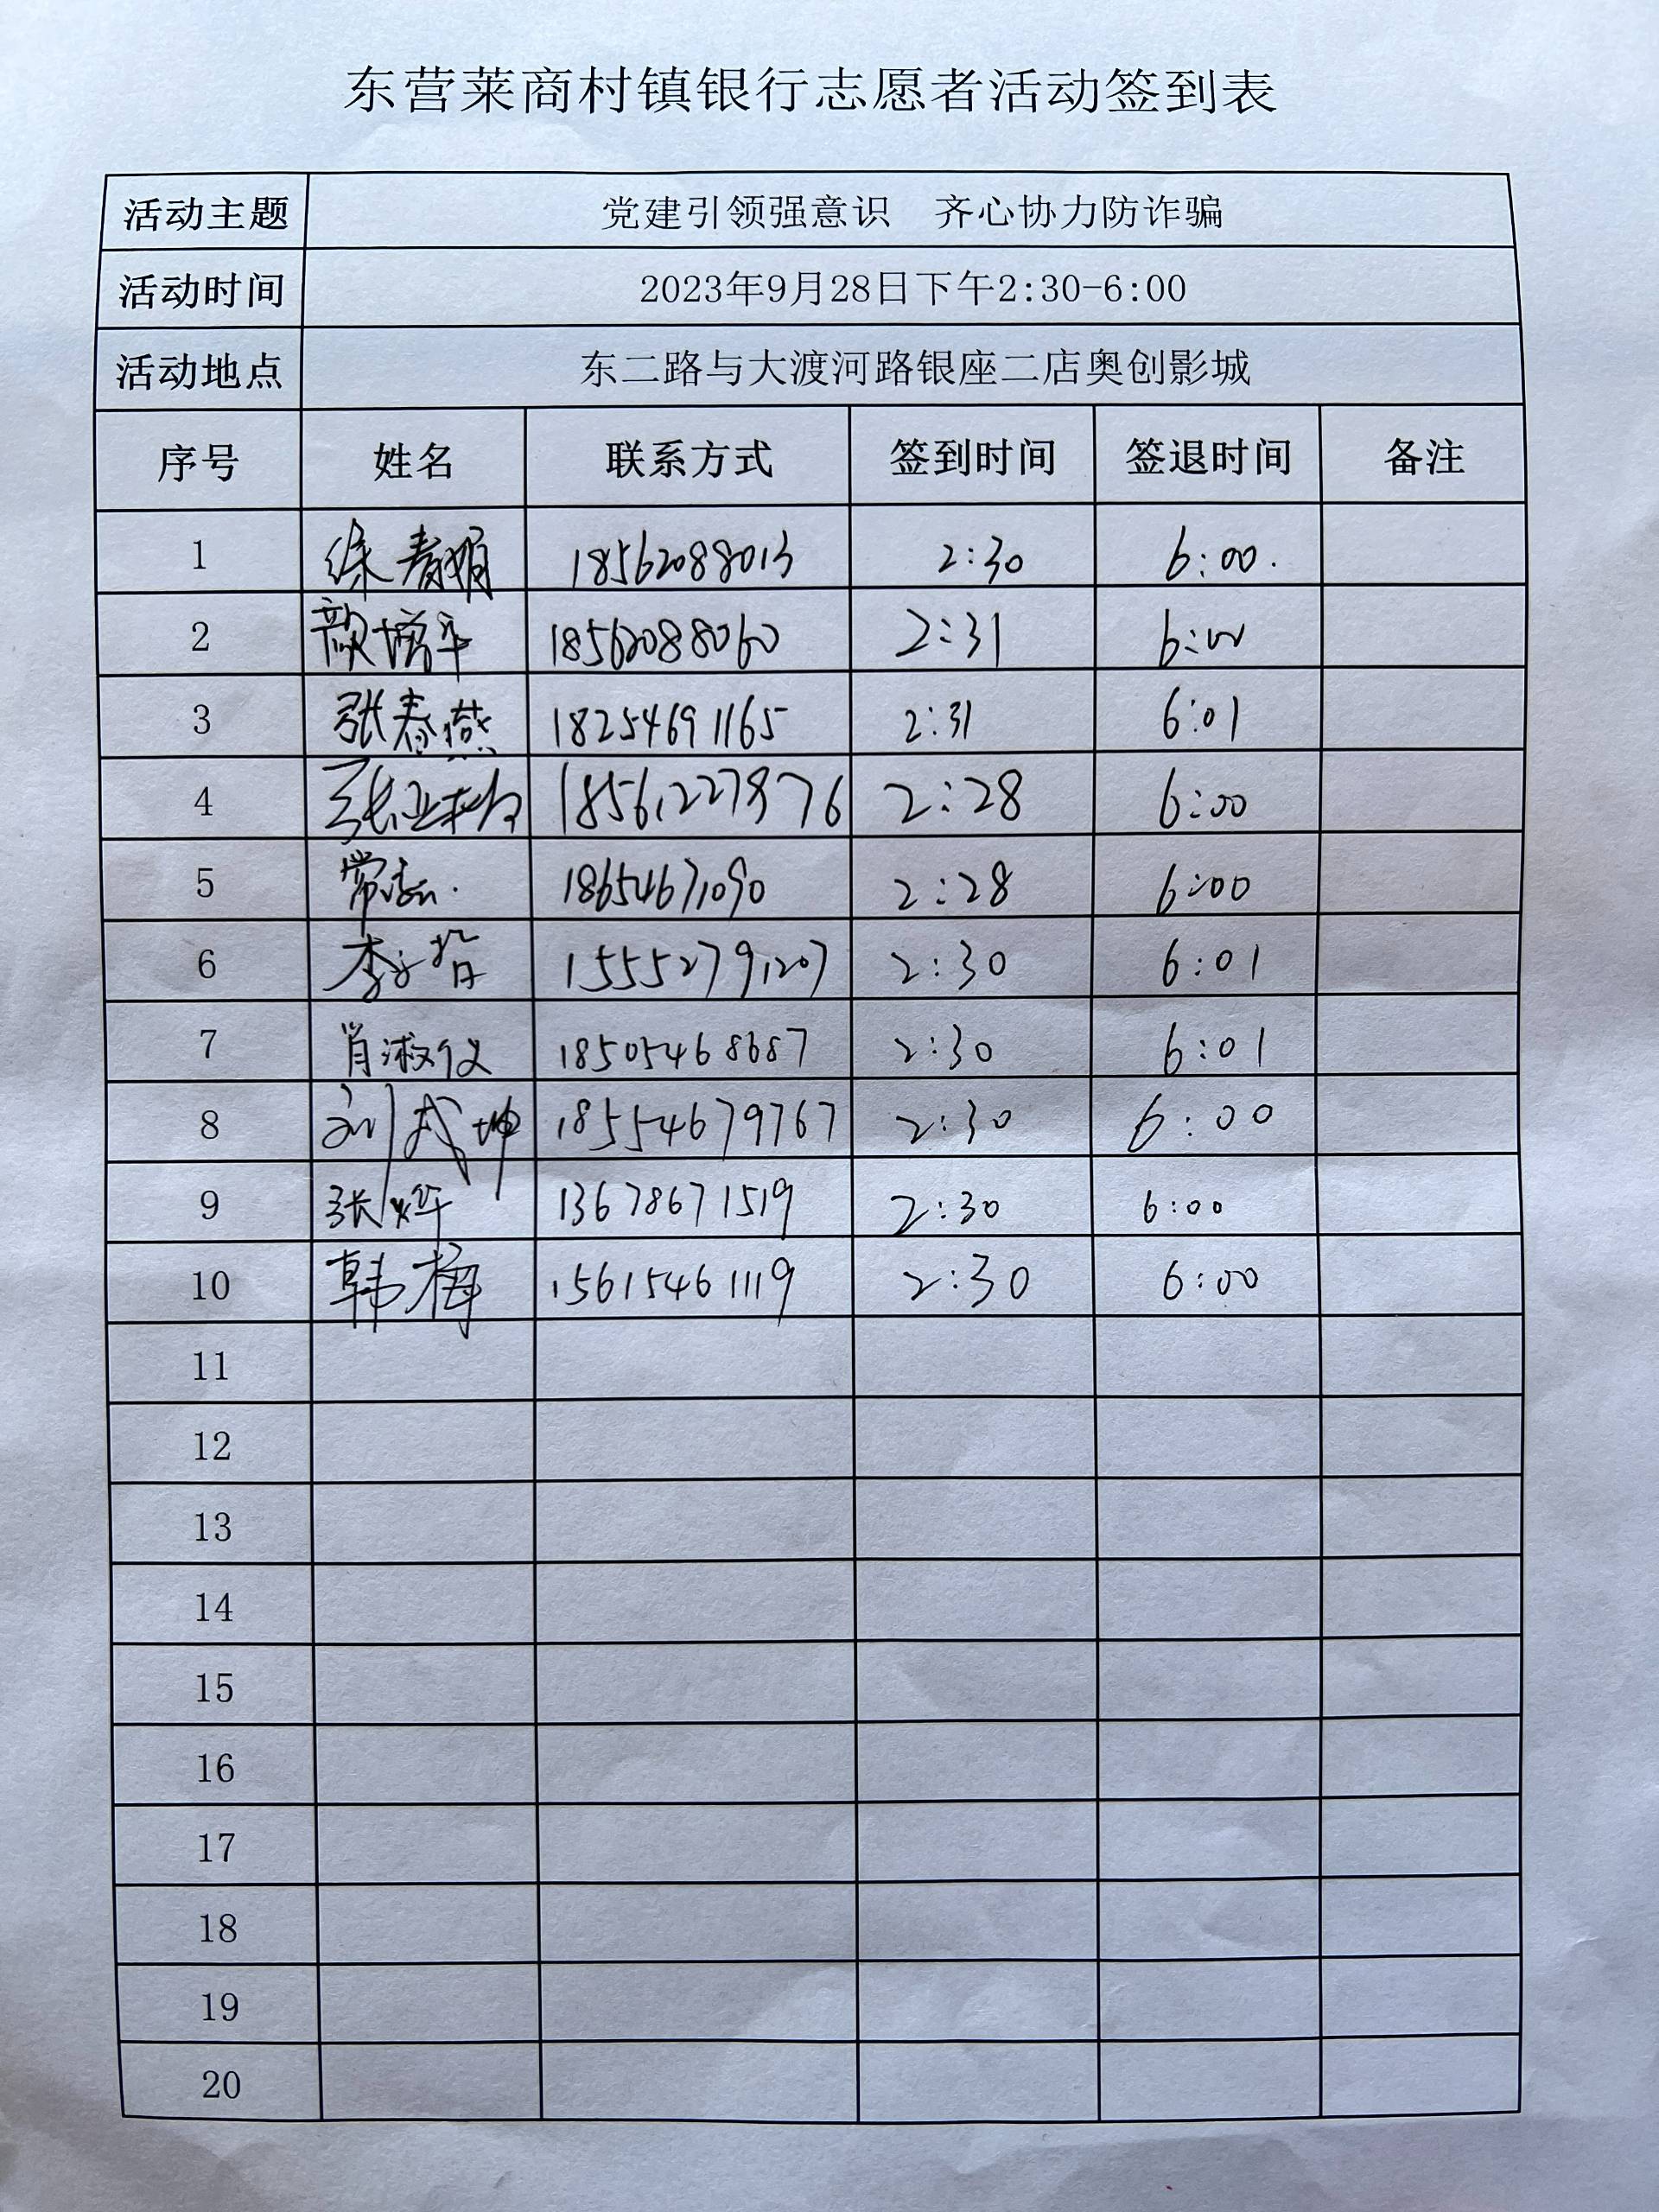 东营莱商村镇银行志愿者活动签到表
活动主题 党建引领强意识 齐心协力防诈骗
活动时间 2023年9月28日下午2:30-6:00
活动地点 东二路与大渡河路银座二店奥创影城
序号 姓名 联系方式 签到时间 签退时间 备注
1 徐春娟 18562088013 2:30 6:00.
2 颜增平 18562088060 2:31 6:00
3 张春燕 18254691165 2:31 6:01
4 18561227876 2:28 6:00
5 18654671090 2:28 6:00
6 15552791207 2:30 6:01
7 肖淑仪 18505468687 2:30 6:01
8 刘武坤 18554679767 2:30 6:00
9 张烨 13678671519 2:30 6:00
10 韩梅 15615461119 2:30 6:00
11
12
13
14
15
16
17
18
19
20